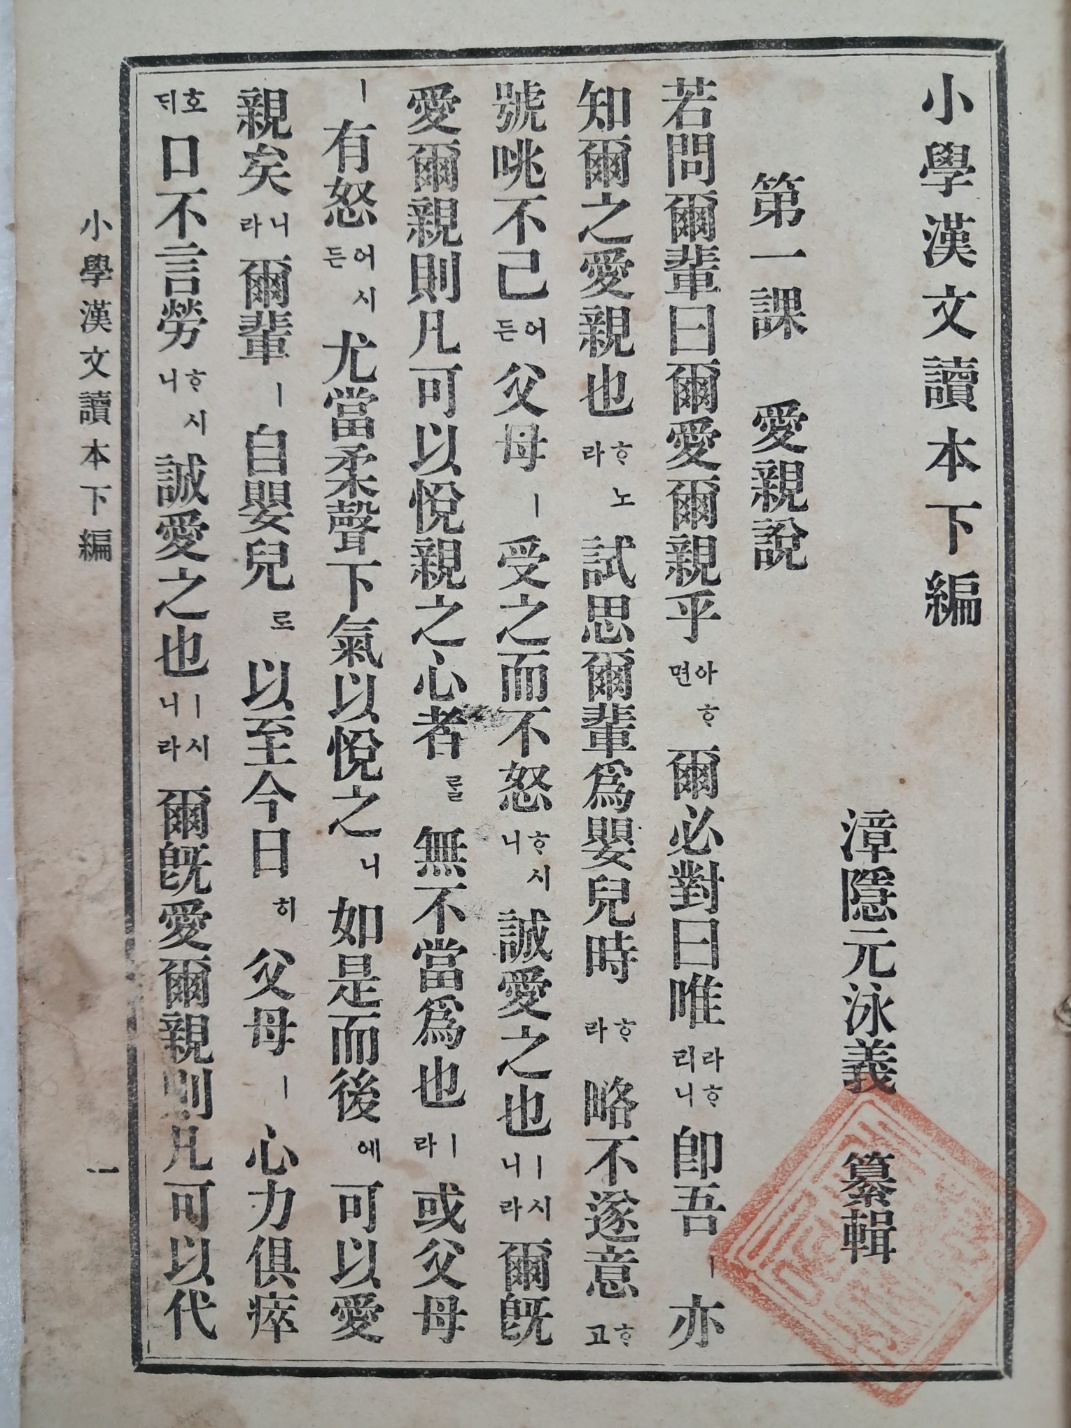 小學漢文讀本下編
漳隱元泳義 纂輯
第一課 愛親說
若問爾輩曰爾愛爾親乎아ᄒᆞ면爾必對曰唯라ᄒᆞ리니卽吾ㅣ亦
知爾之愛親也ᄒᆞ노라試思爾輩爲嬰兒時ᄒᆞ라略不遂意ᄒᆞ고
號咷不已어든父母ㅣ受之而不怒ᄒᆞ시니誠愛之也ㅣ시니라爾旣
愛爾親則凡可以悅親之心者를無不當爲也ㅣ라或父母
ㅣ有怒어시든尤當柔聲下氣以悅之니如是而後에可以愛
親矣니라爾輩ㅣ自嬰兒로以至今日히父母ㅣ心力俱瘁
호ᄃᆡ口不言勞ᄒᆞ시니誠愛之也ㅣ시니라爾旣愛爾親則凡可以代
小學漢文讀本下編
一